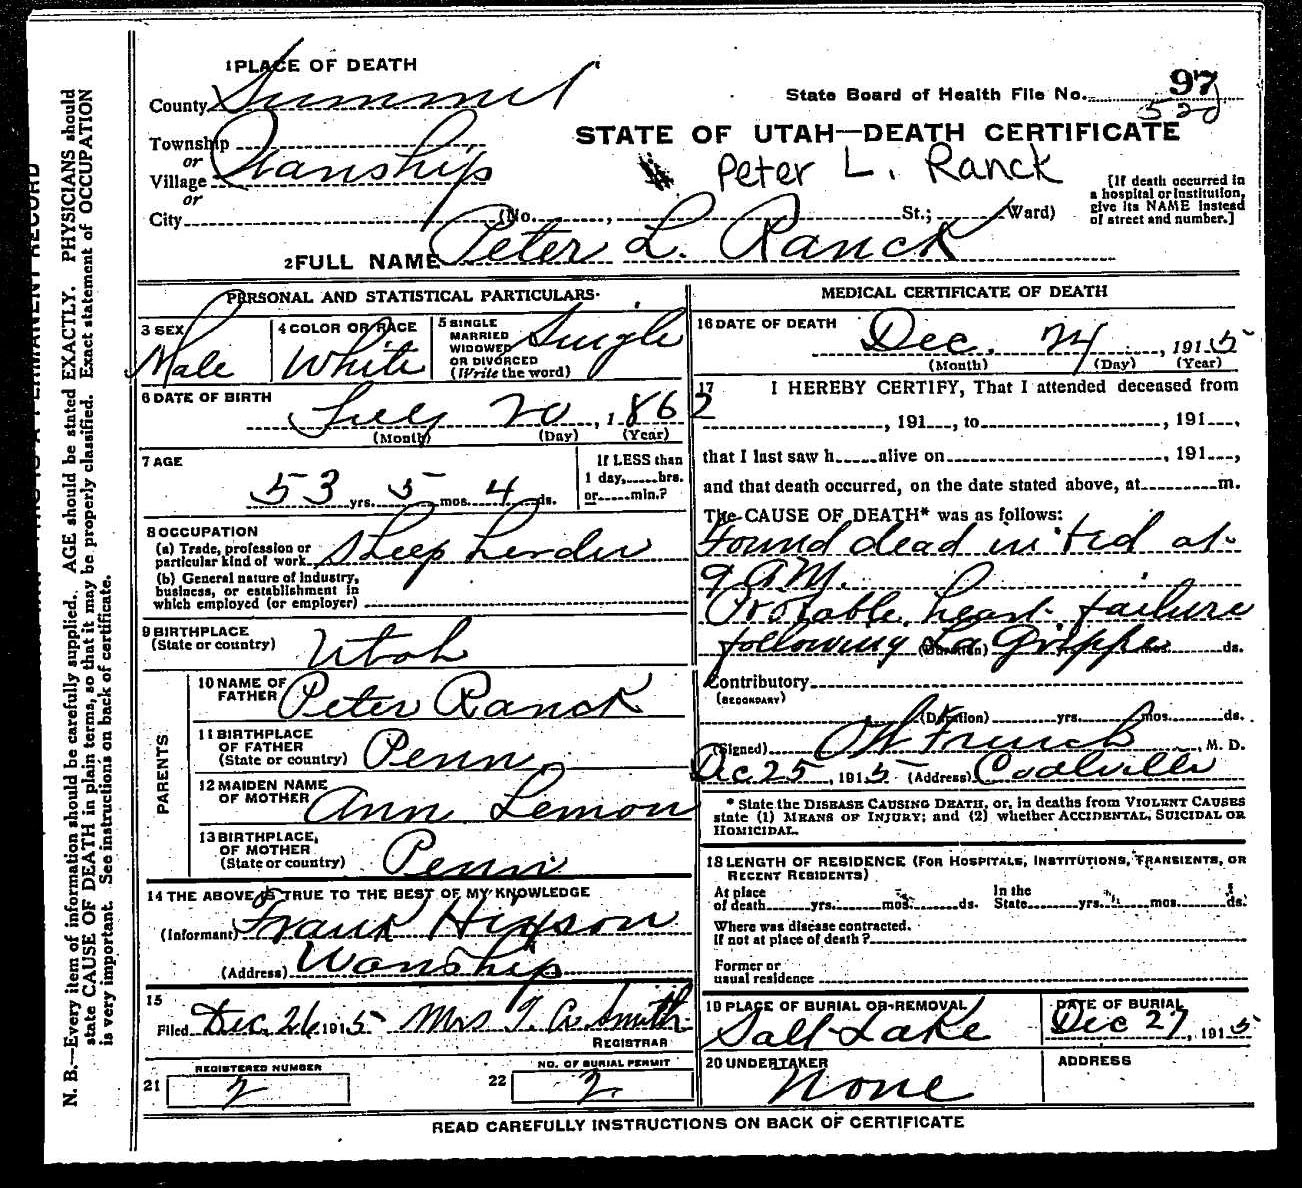 1 PLACE OF DEATH
County Summit
Township
or
Village Wanship
or
City (No. , St.; Ward)
State Board of Health File No. 97
52d
STATE OF UTAH—DEATH CERTIFICATE
Peter L. Ranck
[If death occurred in
a hospital or institution,
give its NAME instead
of street and number.]
2 FULL NAME Peter L. Ranck
PERSONAL AND STATISTICAL PARTICULARS
3 SEX Male
4 COLOR OR RACE White
5 SINGLE
MARRIED
WIDOWED
OR DIVORCED
(Write the word) Single
6 DATE OF BIRTH
July 20, 1862
(Month) (Day) (Year)
7 AGE
53 yrs. 5 mos. 4 ds.
If LESS than
1 day, hrs.
or min.?
8 OCCUPATION
(a) Trade, profession or
particular kind of work Sheep Herder
(b) General nature of industry,
business, or establishment in
which employed (or employer)
9 BIRTHPLACE
(State or country) Utah
PARENTS
10 NAME OF
FATHER Peter Ranck
11 BIRTHPLACE
OF FATHER
(State or country) Penn
12 MAIDEN NAME
OF MOTHER Ann Lemon
13 BIRTHPLACE
OF MOTHER
(State or country) Penn
14 THE ABOVE IS TRUE TO THE BEST OF MY KNOWLEDGE
(Informant) Frank Hixson
(Address) Wanship
15
Filed Dec 26 1915 Mrs T. A. Smith
REGISTRAR
REGISTERED NUMBER
21 2
NO. OF BURIAL PERMIT
22 2
MEDICAL CERTIFICATE OF DEATH
16 DATE OF DEATH
Dec. 24, 1915
(Month) (Day) (Year)
17 I HEREBY CERTIFY, That I attended deceased from
, 191 , to , 191 ,
that I last saw h alive on , 191 ,
and that death occurred, on the date stated above, at m.
The CAUSE OF DEATH* was as follows:
Found dead in bed at
9 A.M.
Probable heart failure
following La Grippe (Duration) ds.
Contributory
(SECONDARY)
(Duration) yrs. mos. ds.
(Signed) French, M. D.
Dec 25, 1915 (Address) Coalville
* State the DISEASE CAUSING DEATH, or, in deaths from VIOLENT CAUSES
state (1) MEANS OF INJURY; and (2) whether ACCIDENTAL, SUICIDAL OR
HOMICIDAL.
18 LENGTH OF RESIDENCE (FOR HOSPITALS, INSTITUTIONS, TRANSIENTS, OR
RECENT RESIDENTS)
At place
of death yrs. mos. ds.
In the
State yrs. mos. ds.
Where was disease contracted.
If not at place of death?
Former or
usual residence
19 PLACE OF BURIAL OR REMOVAL
Salt Lake
DATE OF BURIAL
Dec 27, 1915
20 UNDERTAKER
None
ADDRESS
READ CAREFULLY INSTRUCTIONS ON BACK OF CERTIFICATE
N. B.—Every item of information should be carefully supplied. AGE should be stated EXACTLY. PHYSICIANS should
state CAUSE OF DEATH in plain terms, so that it may be properly classified. Exact statement of OCCUPATION
is very important. See instructions on back of certificate.